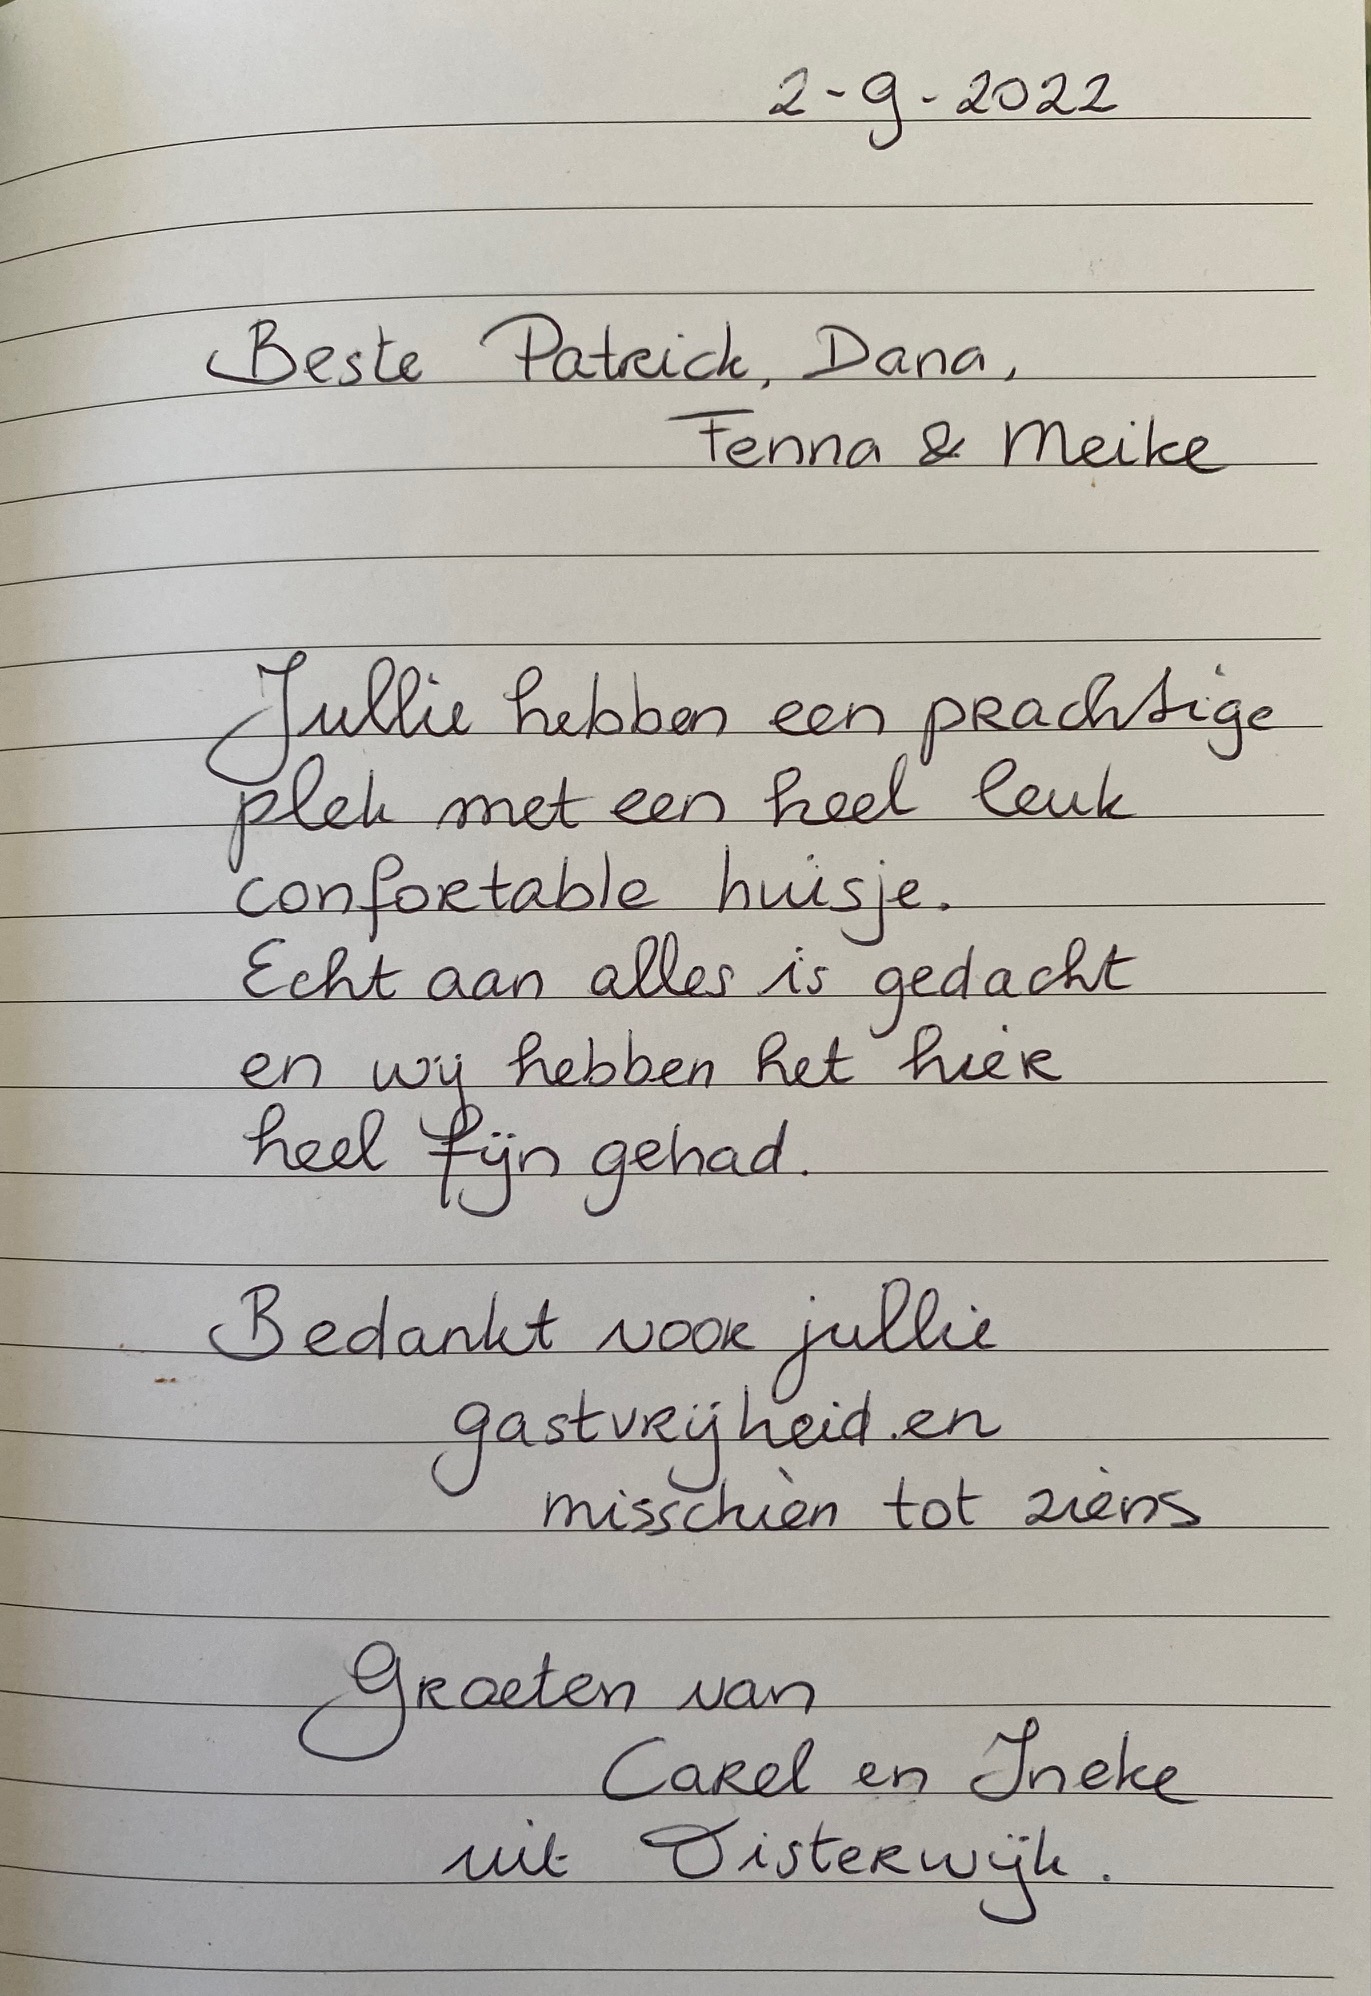 2-9-2022
Beste Patrick, Dana,
Fenna & Meike
Jullie hebben een prachtige
plek met een heel leuk
confortable huisje.
Echt aan alles is gedacht
en wij hebben het hier
heel fijn gehad.
Bedankt voor jullie
gastvrijheid en
misschien tot ziens
Groeten van
Carel en Ineke
uit Oisterwijk.